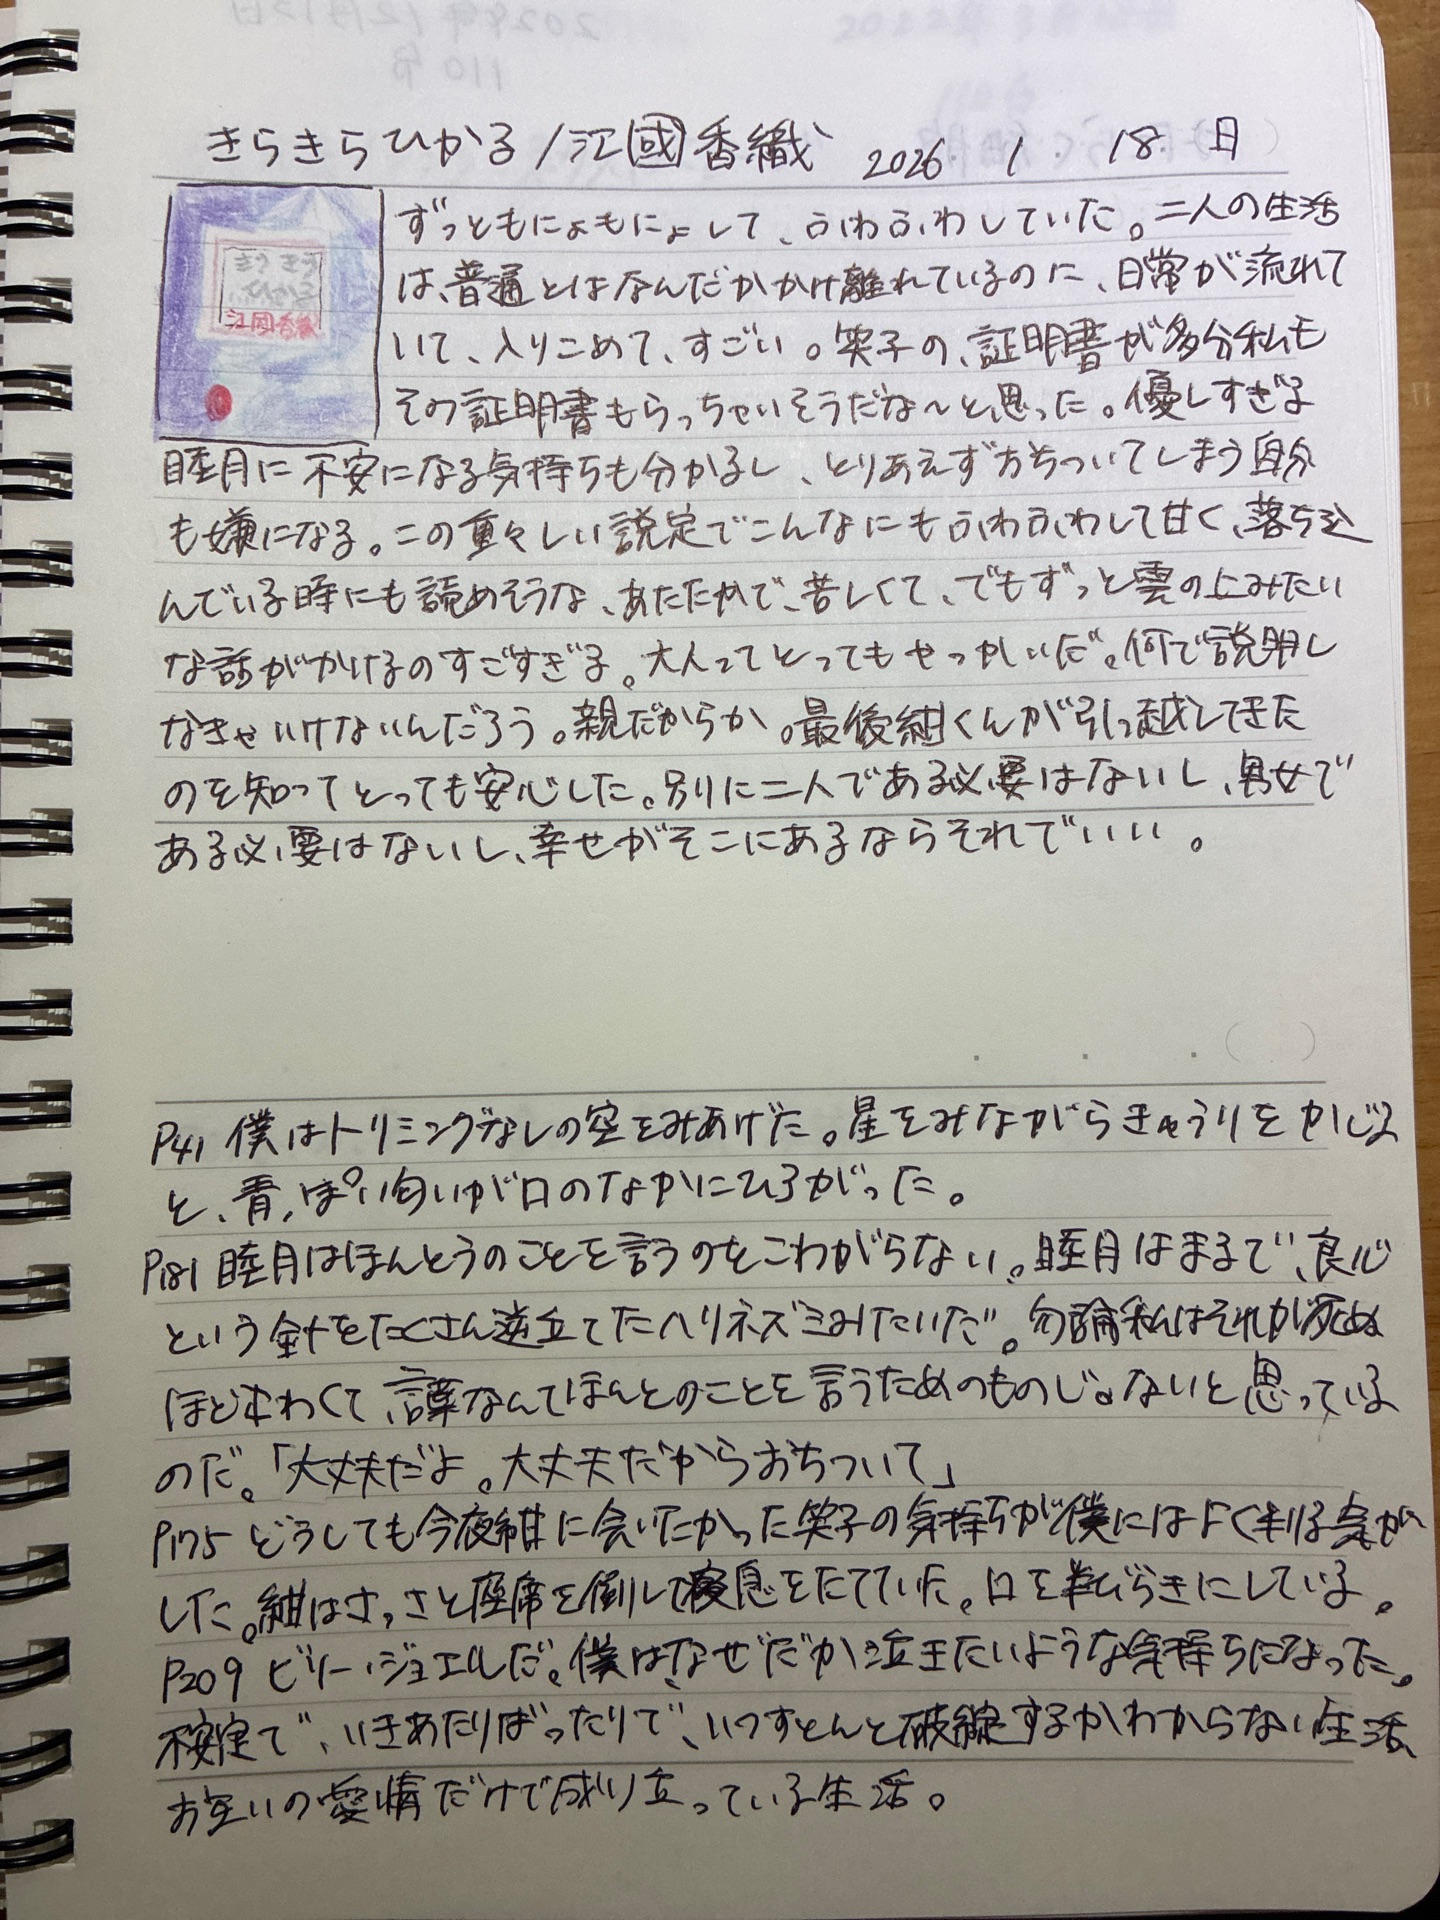 きらきらひかる/江國香織 2026 1 18 日
きらきら
ひかる
江國香織
ずっともにょもにょして、ふわふわしていた。二人の生活
は、普通とはなんだかかけ離れているのに、日常が流れて
いて、入りこめて、すごい。笑子の、証明書が多分私も
その証明書もらっちゃいそうだな〜と思った。優しすぎる
睦月に不安になる気持ちも分かるし、とりあえずおちついてしまう自分
も嫌になる。この重々しい設定でこんなにもふわふわして甘く、落ち込
んでいる時にも読めそうな、あたたかで、苦しくて、でもずっと雲の上みたい
な話がかけるのすごすぎる。大人ってとってもやっかいだ。何で説明し
なきゃいけないんだろう。親だからか。最後紺くんが引っ越してきた
のを知ってとっても安心した。別に二人である必要はないし、男女で
ある必要はないし、幸せがそこにあるならそれでいい。
P41 僕はトリミングなしの空をみあげた。星をみながらきゅうりをかじる
と、青っぽい匂いが口のなかにひろがった。
P181 睦月はほんとうのことを言うのをこわがらない。睦月はまるで、良心
という針をたくさん逆立てたハリネズミみたいだ。勿論私はそれが死ぬ
ほどこわくて、言葉なんてほんとのことを言うためのものじゃないと思っている
のだ。「大丈夫だよ。大丈夫だからおちついて」
P175 どうしても今夜紺に会いたかった笑子の気持ちが僕にはよく判る気が
した。紺はさっさと座席を倒して寝息をたてていた。口を半びらきにしている。
P209 ビリー・ジョエルだ。僕はなぜだか泣きたいような気持ちになった。
不安定で、いきあたりばったりで、いつすとんと破綻するかわからない生活、
お互いの愛情だけで成り立っている生活。